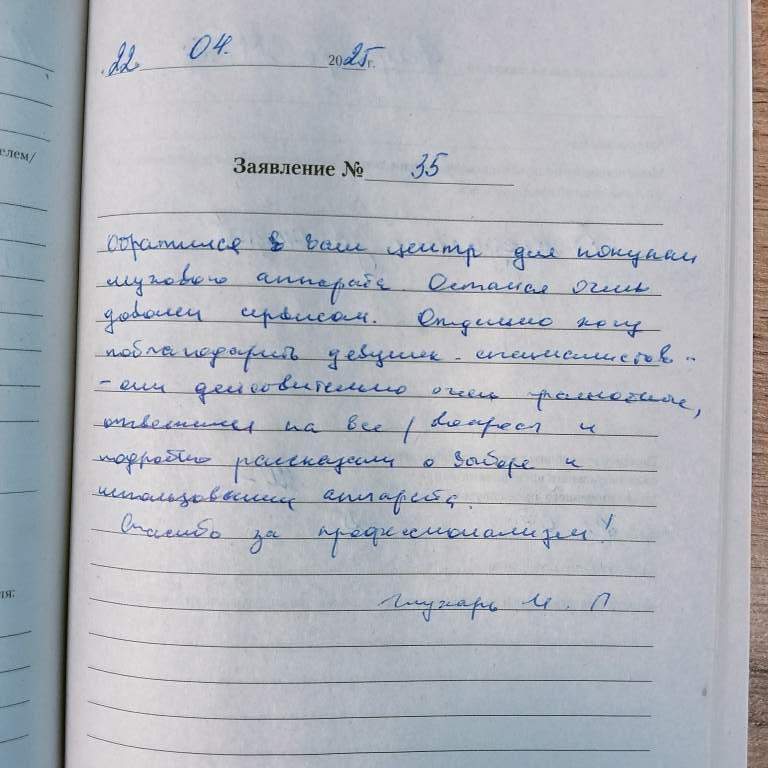 22 04. 2025 г.
елем/
Заявление № 35
Обратился в ваш центр для покупки
слухового аппарата. Остался очень
доволен сервисом. Отдельно хочу
поблагодарить девушек-специалистов -
- они действительно очень грамотные,
ответили на все вопросы и
подробно рассказали о выборе и
использовании аппарата.
Спасибо за профессионализм!
ля:
Глухарь И. П